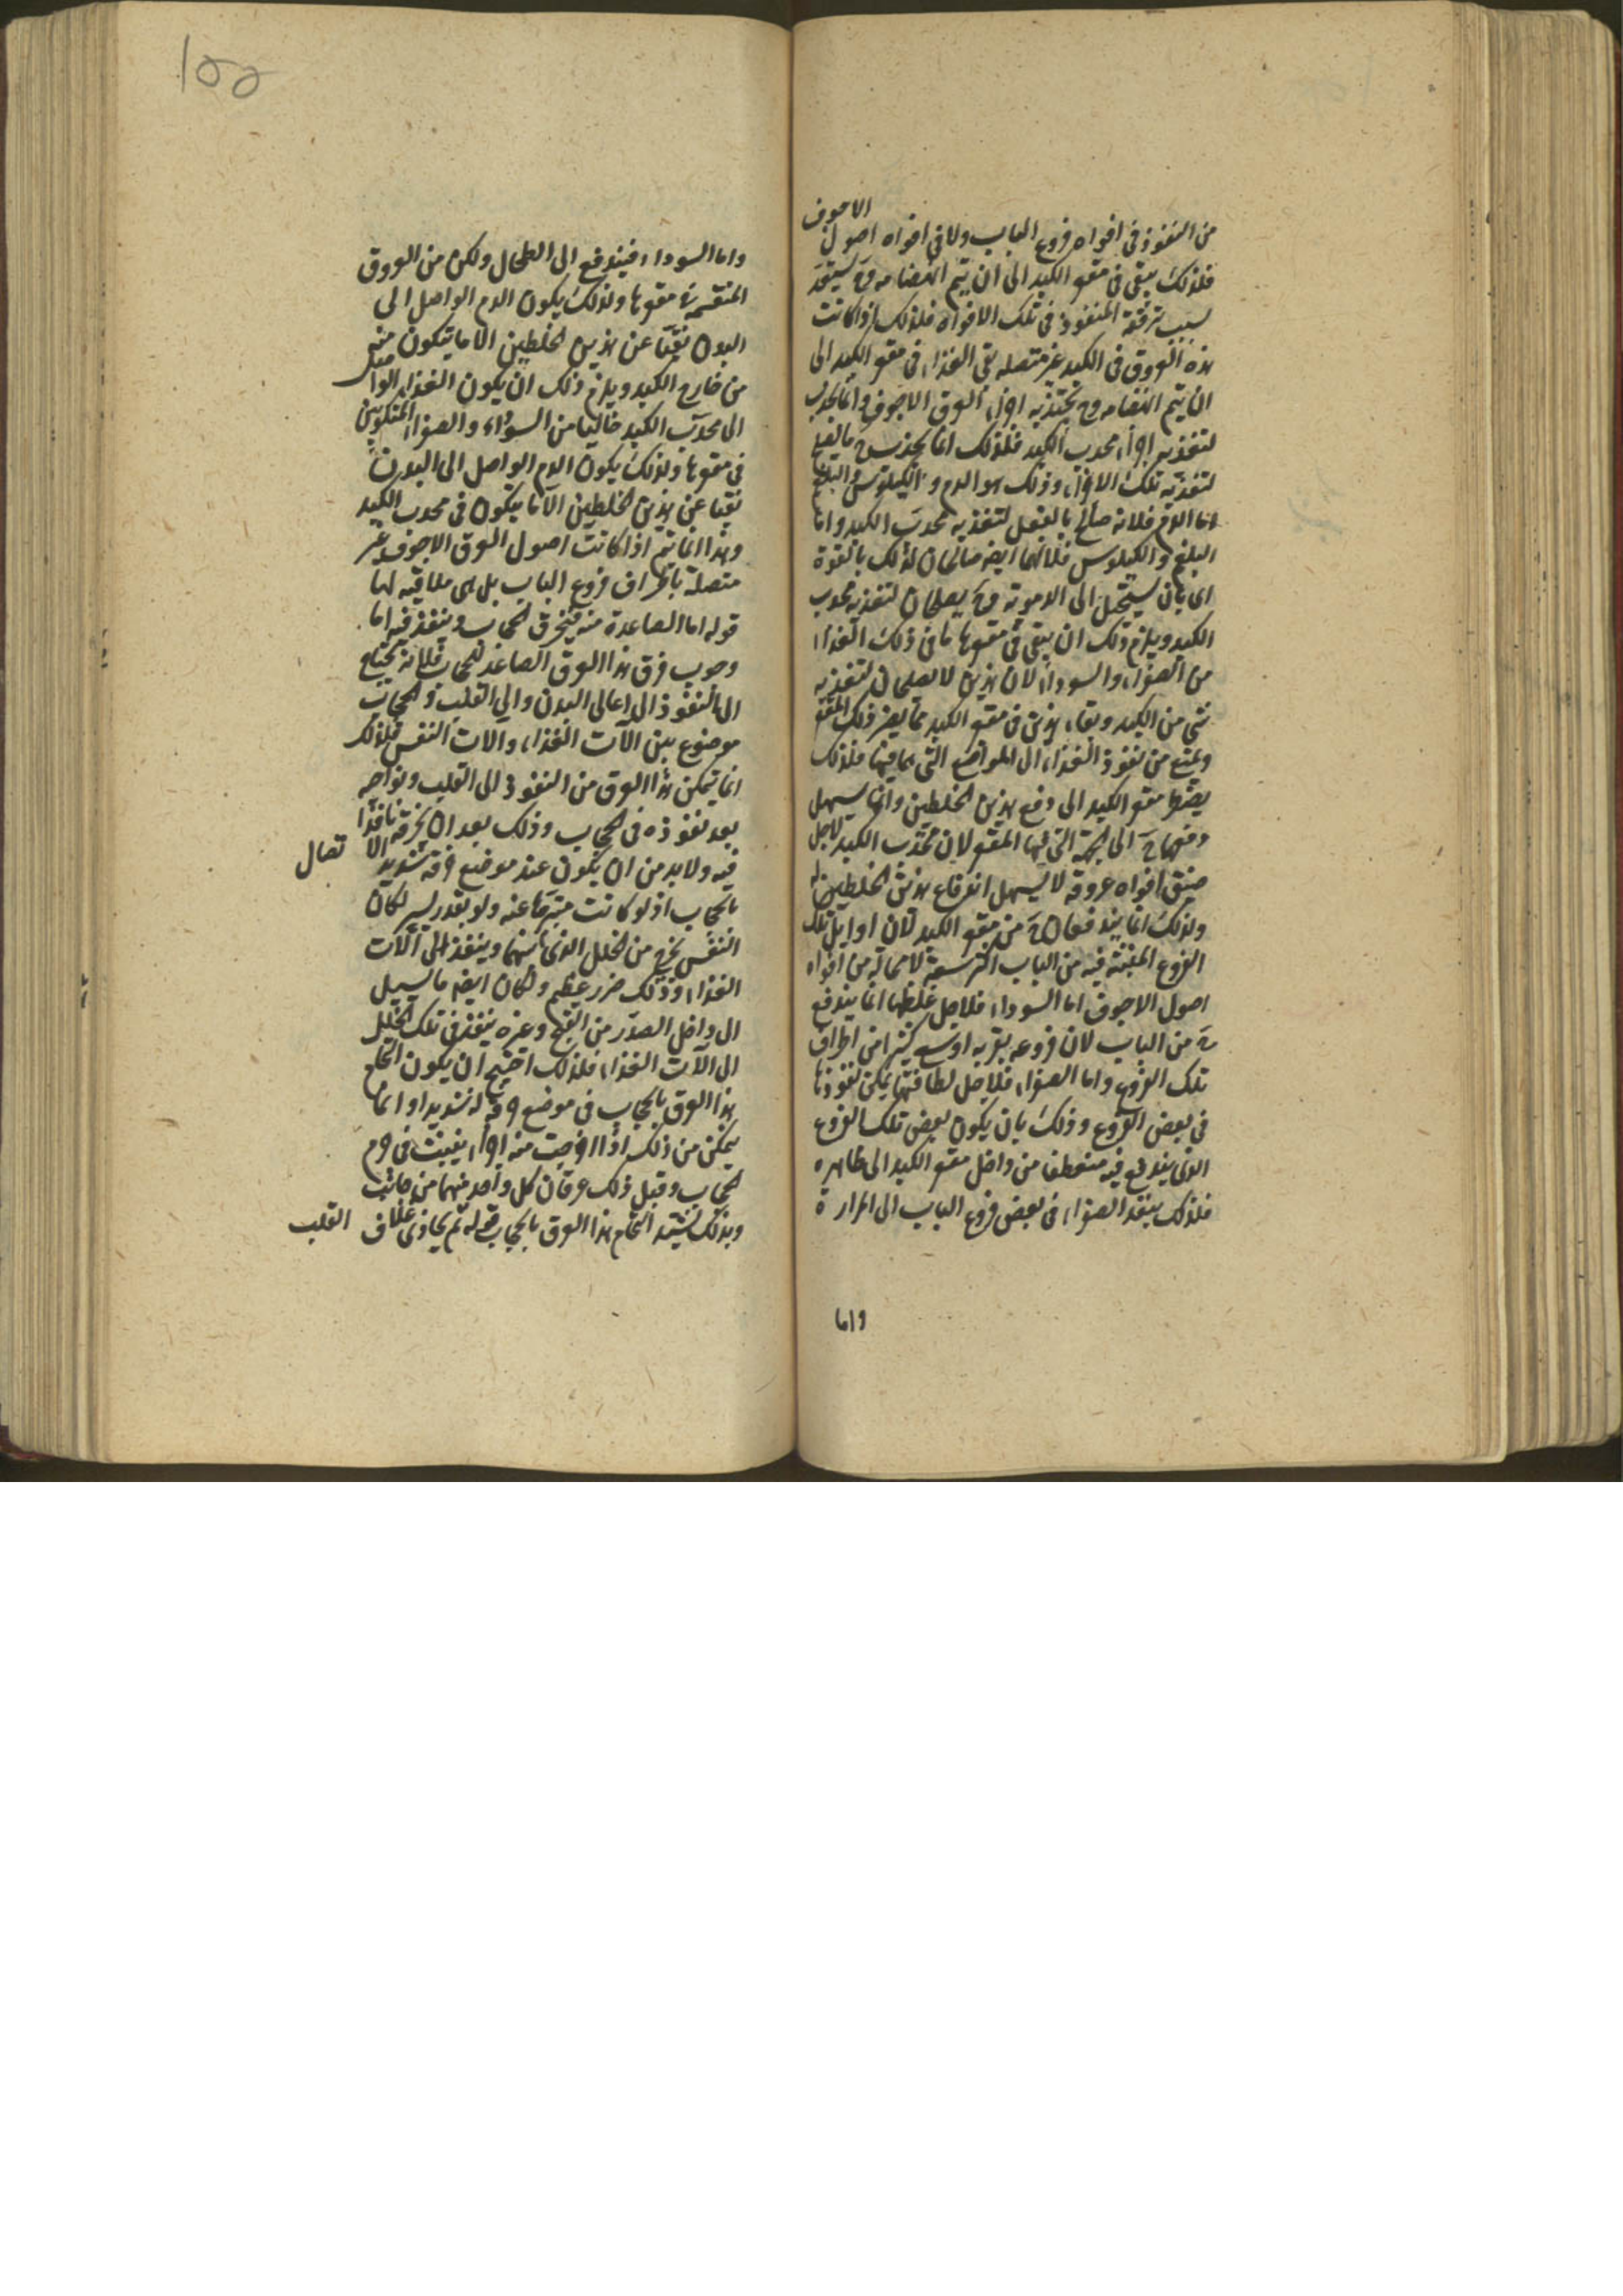 من النفوذ في افواه فروع الباب ولا في افواه اصول الاجوف
فلذلك يبقى في مقعر الكبد الى ان يتم انهضامه وح يستعد
بسبب ترققه للنفوذ في تلك الافواه فلذلك اذا كانت
هذه العروق في الكبد غير متصله بقي الغذاء في مقعر الكبد الى
ان يتم انهضامه وح تجتذبه اجزاء العروق الاجوف وانما يجذب
لتغذيه اجزاء محدب الكبد فلذلك انما يجذب ما يصلح
لتغذيه تلك الاجزاء وذلك هو الدم والكيلوس والبلغم
اما الدم فلانه صالح بالفعل لتغذيه محدب الكبد واما
البلغم والكيلوس فلانهما ايضا صالحان لذلك بالقوة
اى بان يستحيل الى الدمويه وح يصلحان لتغذيه محدب
الكبد ويلزم ذلك ان يبقى في مقعرها ما في ذلك الغذاء
من الصفراء والسوداء لان هذين لا يصلحان لتغذيه
شي من الكبد وبقاء هذين في مقعر الكبد مما يضر ذلك المقعر
ويمنع من نفوذ الغذاء الى المواضع التي هما فيها فلذلك
يضطر مقعر الكبد الى دفع هذين الخلطين وانما يسهل
دفعهما الى الجهة التي فيها المقعر لان محدب الكبد لاجل
ضيق افواه عروقه لا يسهل اندفاع هذين الخلطين
ولذلك انما يندفعان من مقعر الكبد لان اوايل تلك
الفروع المنبثه فيه من الباب اكثر سعة لا محاله من افواه
اصول الاجوف اما السوداء فلاجل غلظها انما يندفع
من الباب لان فروعه بقربه اوسع كثيرا من اطراف
تلك الفروع واما الصفراء فلاجل لطافتها يمكن نفوذها
في بعض الفروع وذلك بان يكون بعض تلك الفروع
الذي يندفع فيه منعطفا من داخل مقعر الكبد الى ظاهره
فلذلك ينفذ الصفراء في بعض فروع الباب الى المرارة
واما
١٥٥
واما السوداء فيندفع الى الطحال ولكن من العروق
المنقسمة مقعرها ولذلك يكون الدم الواصل الى
البدن نقيا عن هذين الخلطين الا ما يتكون منه
من خارج الكبد ويلزم ذلك ان يكون الغذاء الواصل
الى محدب الكبد خاليا من السوداء والصفراء المتكونين
في مقعرها ولذلك يكون الدم الواصل الى البدن
نقيا عن هذين الخلطين الا ما يتكون في محدب الكبد
وهذا انما يتم اذا كانت اصول العروق الاجوف غير
متصلة باطراف فروع الباب بل هي ملاقيه لها
قوله اما الصاعدة منه فيخرق الحجاب وينفذ فيه اما
وجوب خرق هذا العرق الصاعد للحجاب فلانه يحتاج
الى النفوذ الى اعالي البدن والى القلب والحجاب
موضوع بين الآت الغذاء والات النفس فلذلك
انما يتمكن هذا العرق من النفوذ الى القلب ونواحيه
بعد نفوذه في الحجاب وذلك بعد ان يخرقه نافذا
فيه ولا بد من ان يكون عند موضع خرقه شديد الاتصال
بالحجاب اذ لو كانت متبريا عنه ولو بقدر يسير لكان
النفس يخرج من الخلل الذى بينهما وينفذ الى الآت
الغذاء وذلك ضرر عظيم ولكان ايضا ما يسيل
الى داخل الصدر من القيح وغيره ينفذ في تلك الخلل
الى الآت الغذاء فلذلك احتيج ان يكون التحام
هذا العرق بالحجاب في موضع خرقه له شديدا وانما
يمكن من ذلك اذا خرجت منه اجزاء ينبت في جرم
الحجاب وقبل ذلك عرقان كل واحد منهما من جانب
وبذلك يشتد التحام هذا العرق بالحجاب قوله ثم يحاذى غلاف القلب